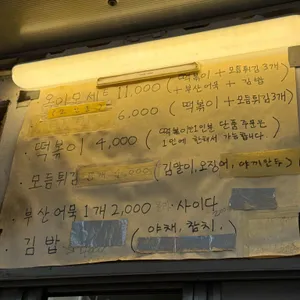 온아모세트 11,000 (떡볶이 + 모듬튀김3개 + 부산어묵 + 김밥)
6.000 (떡볶이 + 모듬튀김3개)
· 떡볶이 4,000 (떡볶이1인분 단품주문은 1인에 한해서 가능합니다)
· 모듬튀김 (김말이, 오징어, 야끼만두)
· 부산어묵 1개 2,000 · 사이다
· 김밥 (야채, 참치.)